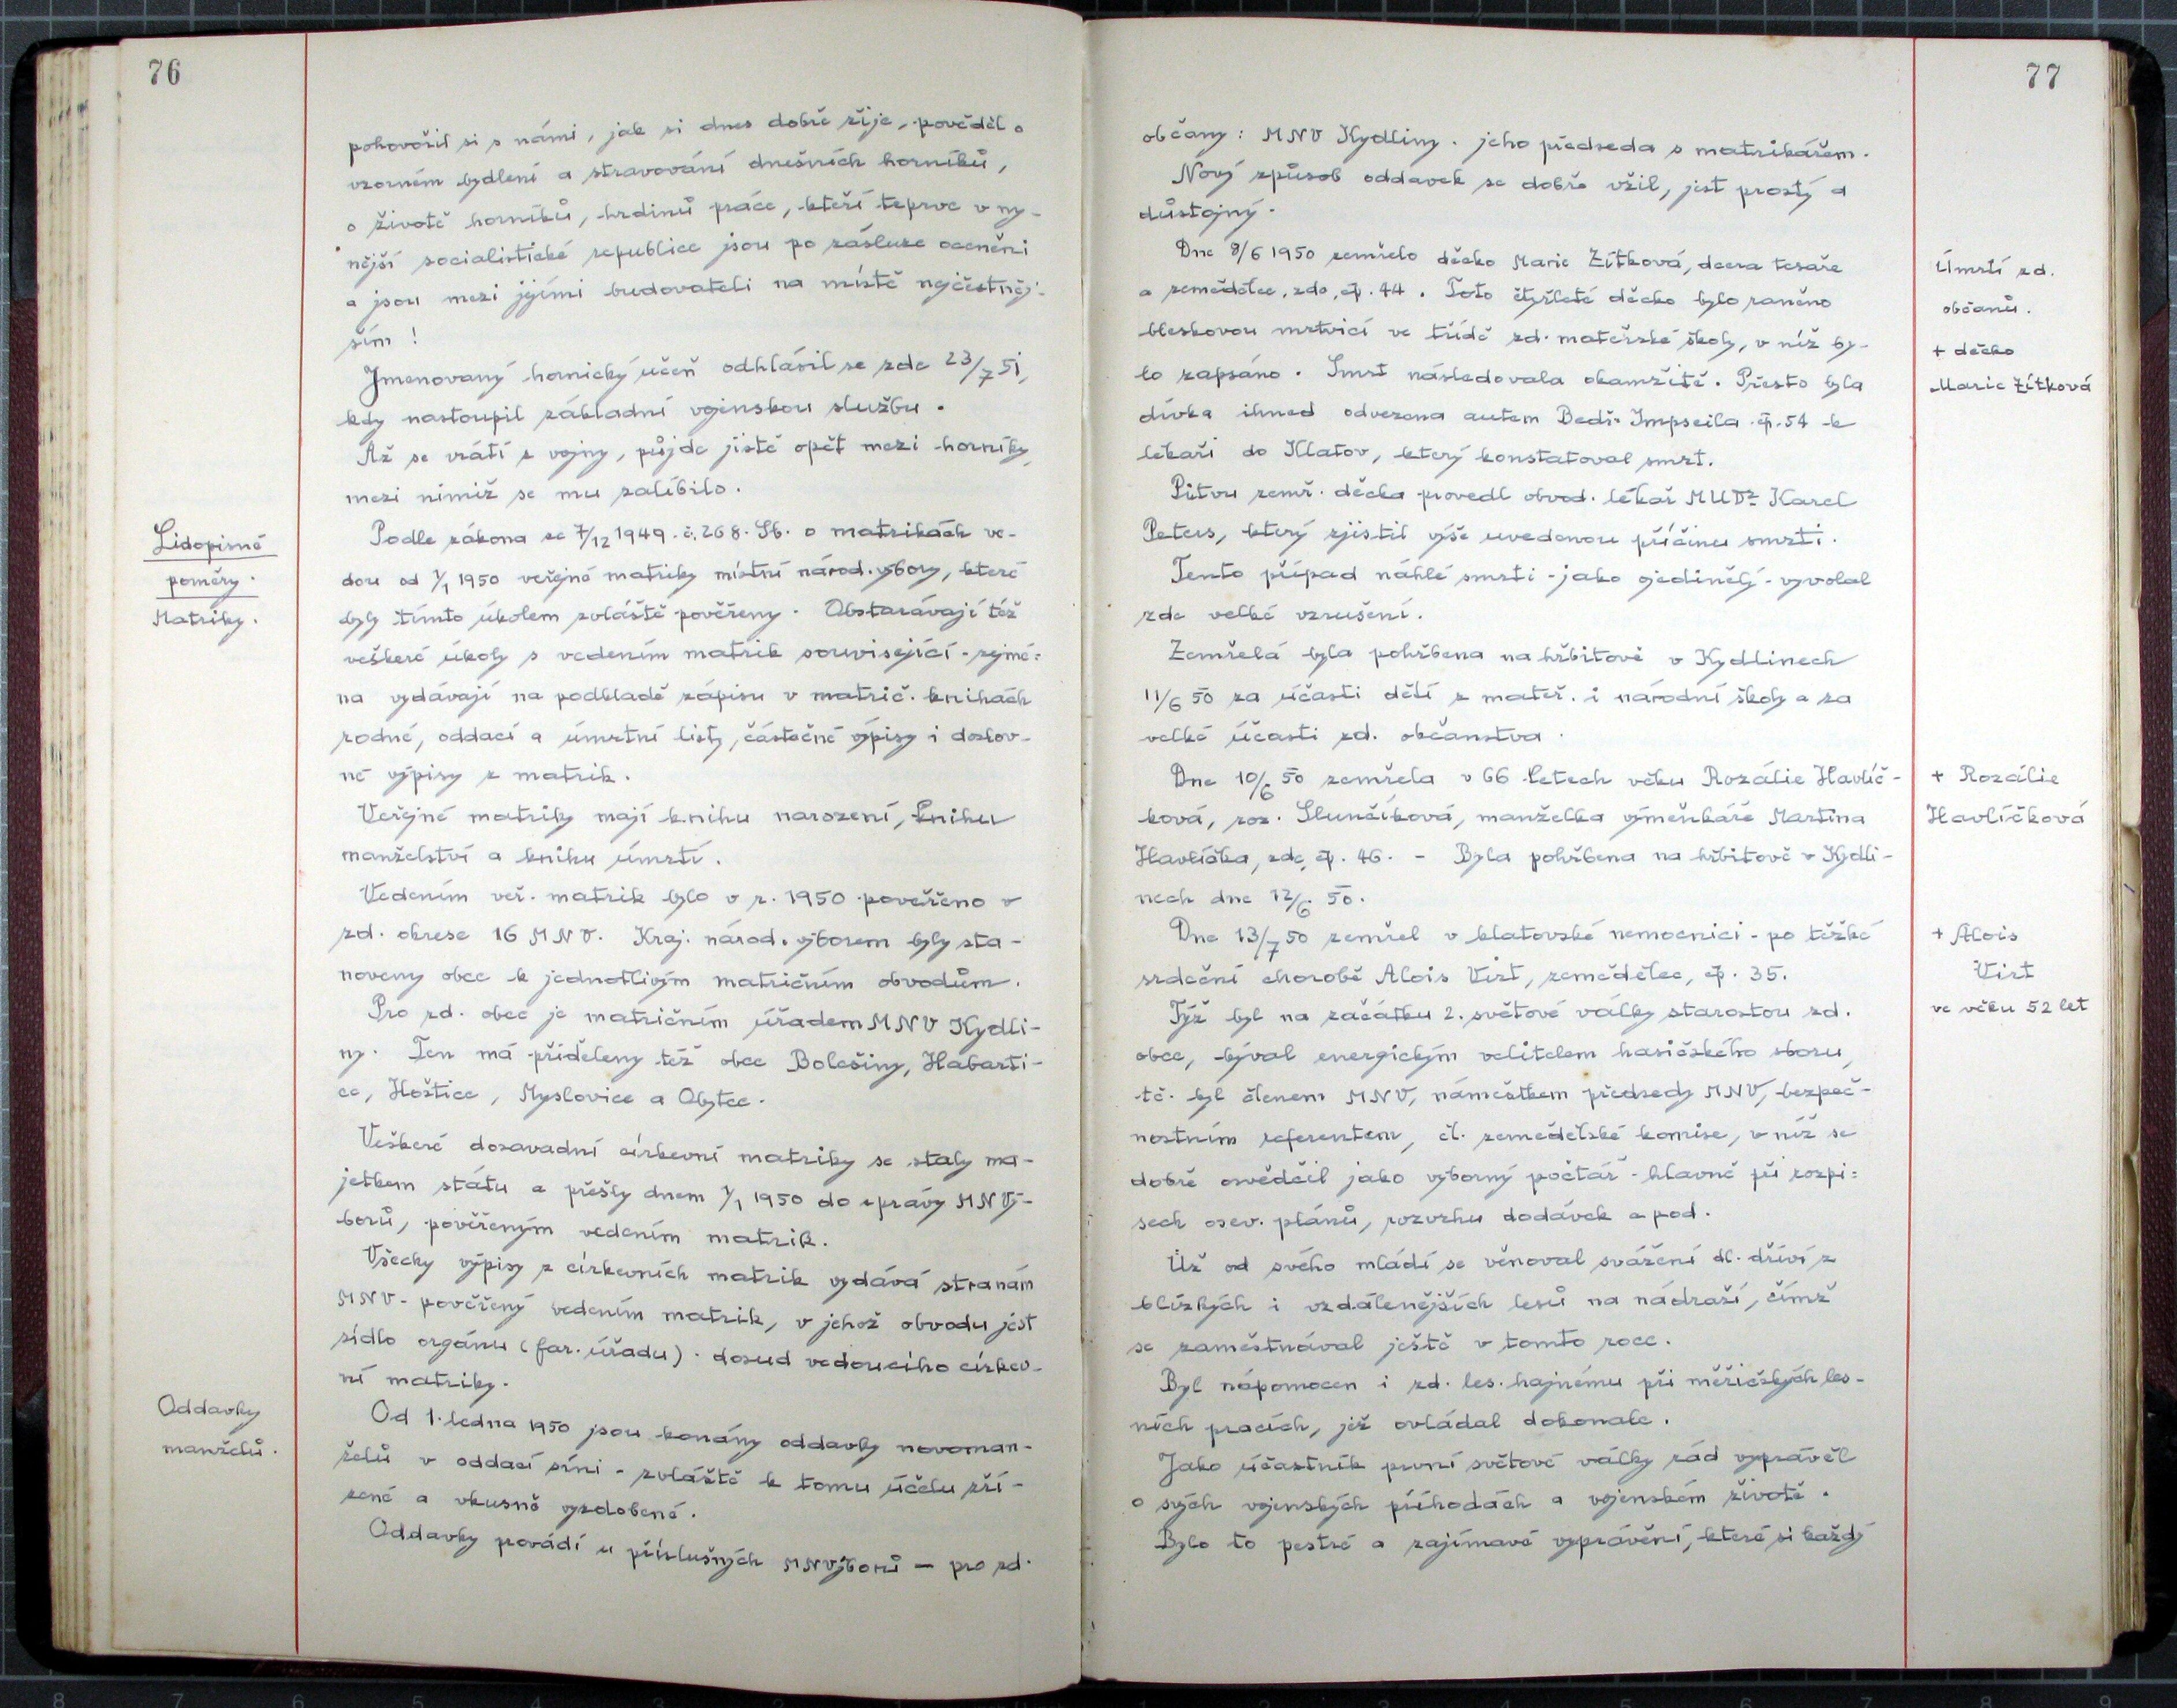 76
pohovořil si s námi, jak si dnes dobře žije, pověděl o
vzorném bydlení a stravování dnešních horníků,
o životě horníků, hrdinů práce, kteří teprve v ny-
nější socialistické republice jsou po zásluze oceněni
a jsou mezi jejími budovateli na místě nejčestněj-
ším!
Jmenovaný hornický učeň odhlásil se zde 23/7 51,
kdy nastoupil základní vojenskou službu.
Až se vrátí z vojny, půjde jistě opět mezi horníky,
mezi nimiž se mu zalíbilo.
Lidopisné
poměry.
Matriky.
Podle zákona ze 7/12 1949. č. 268. Sb. o matrikách ve-
dou od 1/1 1950 veřejné matriky místní národ. výbory, které
byly tímto úkolem zvláště pověřeny. Obstarávají též
veškeré úkoly s vedením matrik související - zejmé=
na vydávají na podkladě zápisu v matrič. knihách
rodné, oddací a úmrtní listy, částečné výpisy i doslov-
né výpisy z matrik.
Veřejné matriky mají knihu narození, knihu
manželství a knihu úmrtí.
Vedením veř. matrik bylo v r. 1950 pověřeno v
zd. okrese 16 MNV. Kraj. národ. výborem byly sta-
noveny obce k jednotlivým matričním obvodům.
Pro zd. obec je matričním úřadem MNV Kydli-
ny. Ten má přiděleny též obce Bolešiny, Habarti-
ce, Hoštice, Myslovice a Obytce.
Veškeré dosavadní církevní matriky se staly ma-
jetkem státu a přešly dnem 1/1 1950 do správy MNVý-
borů, pověřeným vedením matrik.
Všecky výpisy z církevních matrik vydává stranám
MNV - pověřený vedením matrik, v jehož obvodu jest
sídlo orgánu (far. úřadu) - dosud vedoucího církev-
ní matriky.
Oddavky
manželů.
Od 1. ledna 1950 jsou konány oddavky novoman-
želů v oddací síni - zvláště k tomu účelu zří-
zené a vkusně vyzdobené.
Oddavky provádí u příslušných MNVýborů — pro zd.
77
občany: MNV Kydliny - jeho předseda s matrikářem.
Nový způsob oddavek se dobře vžil, jest prostý a
důstojný.
Úmrtí zd.
občanů.
+ děcko
Marie Žítková
Dne 8/6 1950 zemřelo děcko Marie Žítková, dcera tesaře
a zemědělce, zde, čp. 44. Toto čtyřleté děcko bylo raněno
bleskovou mrtvicí ve třídě zd. mateřské školy, v níž by-
lo zapsáno. Smrt následovala okamžitě. Přesto byla
dívka ihned odvezena autem Bedř. Impseila čp. 54 k
lékaři do Klatov, který konstatoval smrt.
Pitvu zemř. děcka provedl obvod. lékař MUDr Karel
Peters, který zjistil výše uvedenou příčinu smrti.
Tento případ náhlé smrti - jako ojedinělý - vyvolal
zde velké vzrušení.
Zemřelá byla pohřbena na hřbitově v Kydlinech
11/6 50 za účasti dětí z mateř. i národní školy a za
velké účasti zd. občanstva.
+ Rozálie
Havlíčková
Dne 10/6 50 zemřela v 66 letech věku Rozálie Havlíč-
ková, roz. Slunčíková, manželka výměnkáře Martina
Havlíčka, zde, čp. 46. - Byla pohřbena na hřbitově v Kydli-
nech dne 12/6. 50.
+ Alois
Virt
ve věku 52 let
Dne 13/7 50 zemřel v klatovské nemocnici - po těžké
srdeční chorobě Alois Virt, zemědělec, čp. 35.
Týž byl na začátku 2. světové války starostou zd.
obce, býval energickým velitelem hasičského sboru,
tč. byl členem MNV, náměstkem předsedy MNV, bezpeč-
nostním referentem, čl. zemědělské komise, v níž se
dobře osvědčil jako výborný počtář - hlavně při rozpi=
sech osev. plánů, rozvrhu dodávek a pod.
Už od svého mládí se věnoval svážení dl. dříví z
blízkých i vzdálenějších lesů na nádraží, čímž
se zaměstnával ještě v tomto roce.
Byl nápomocen i zd. les. hajnému při měřičských les-
ních pracích, jež ovládal dokonale.
Jako účastník první světové války rád vyprávěl
o svých vojenských příhodách a vojenském životě.
Bylo to pestré a zajímavé vyprávění, které si každý